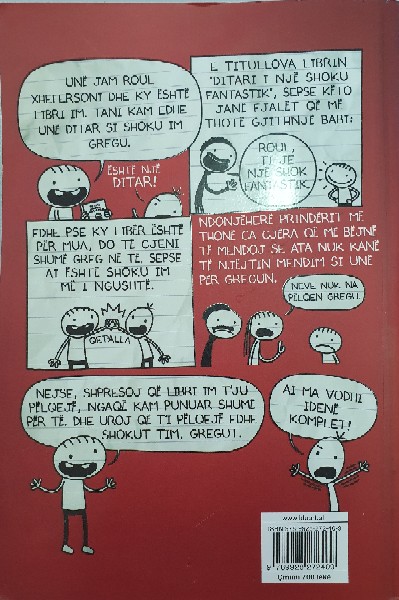 UNË JAM ROUL
XHEFERSONI DHE KY ËSHTË
LIBRI IM. TANI KAM EDHE
UNË DITAR SI SHOKU IM
GREGU.
ËSHTË NJË
DITAR!
E TITULLOVA LIBRIN
"DITARI I NJË SHOKU
FANTASTIK", SEPSE KËTO
JANË FJALËT QË MË
THOTË GJITHNJË BABI:
ROUL,
TI JE
NJË SHOK
FANTASTIK.
EDHE PSE KY LIBËR ËSHTË
PËR MUA, DO TË GJENI
SHUMË GREG NË TË, SEPSE
AI ËSHTË SHOKU IM
MË I NGUSHTË.
QETALLA
NDONJËHERË PRINDËRIT MË
THONË CA GJËRA QË MË BËJNË
TË MENDOJ SE ATA NUK KANË
TË NJËJTIN MENDIM SI UNË
PËR GREGUN.
NEVE NUK NA
PËLQEN GREGU.
NEJSE, SHPRESOJ QË LIBRI IM T'JU
PËLQEJË, NGAQË KAM PUNUAR SHUMË
PËR TË. DHE UROJ QË T'I PËLQEJË EDHE
SHOKUT TIM, GREGUT.
AI MA VODHI
IDENË
KOMPLET!